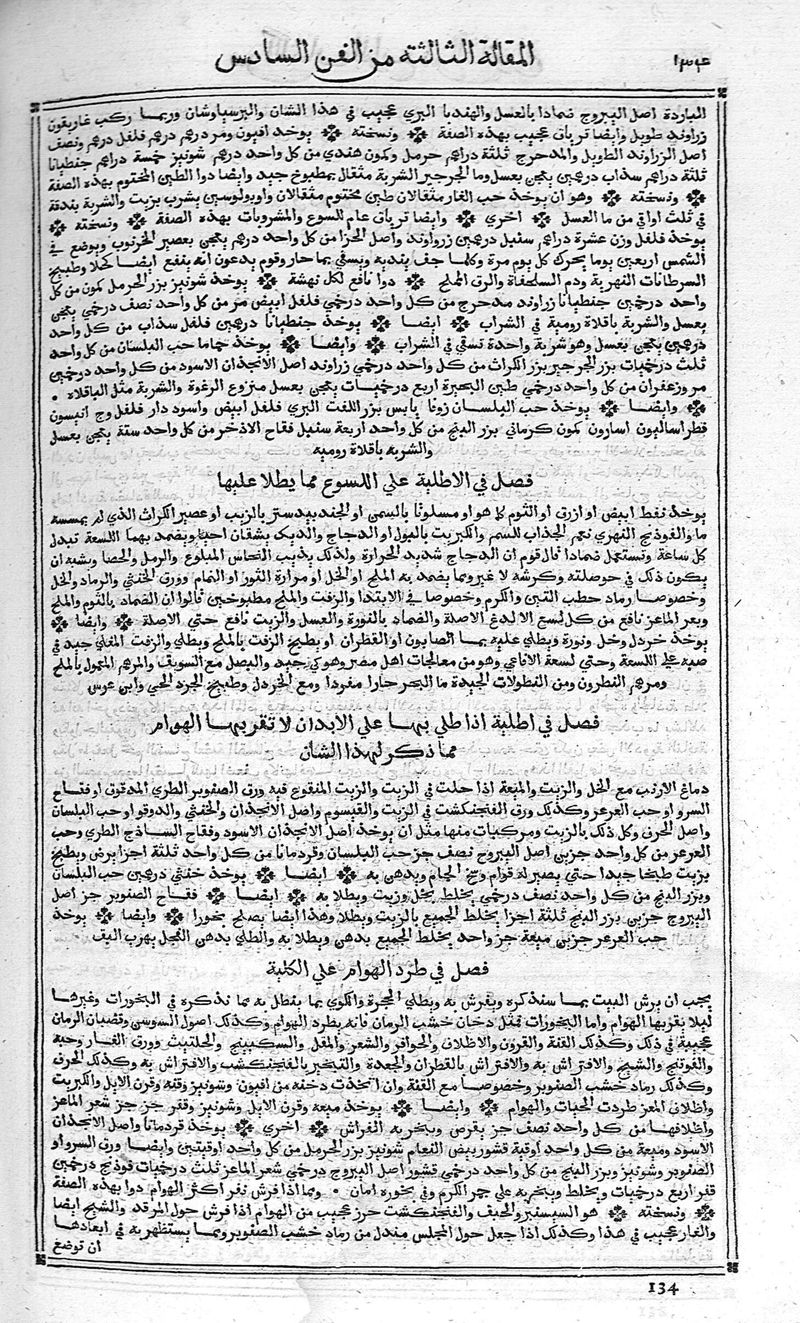 ١٣٤
المقالة الثالثة من الفن السادس
الباردة اصل اليبروج ضمادا بالعسل والهندبا البري عجيب في هذا الشان والبرسياوشان وربما ركب غاريقون
زراوند طويل وايضا ترياق عجيب بهذه الصفة ونسخته يوخذ افيون ومر درهم درهم فلفل درهم ونصف
اصل الزراوند الطويل والمدحرج ثلثة دراهم حرمل وكمون هندي من كل واحد درهم شونيز خمسة دراهم جنطيانا
ثلثة دراهم سذاب درهمين يعجن بعسل وما الجرجير الشربة مثقال بمطبوخ جيد وايضا دوا الطين المختوم بهذه الصفة
ونسخته وهو ان يوخذ حب الغار مثقالان طين مختوم مثقالان واوبولوسين يشرب بزيت والشربة بندقة
في ثلث اواقي من ما العسل اخري وايضا ترياق عام للسوع والمشروبات بهذه الصفة ونسخته
يوخذ فلفل وزن عشرة دراهم سنبل درهمين زراوند واصل الحزا من كل واحد درهم يعجن بعصير الخرنوب ويوضع في
الشمس اربعين يوما يحرك كل يوم مرة وكلما جف يندبه ويسقي بما حار وقوم يدعون انه ينفع ايضا كحلا وطبيخ
السرطانات النهرية ودم السلحفاة والرق الملح دوا نافع لكل نهشة يوخذ شونيز بزر الحرمل كمون من كل
واحد درخمين جنطيانا زراوند مدحرج من كل واحد درخمي فلفل ابيض مر من كل واحد نصف درخمي يعجن
بعسل والشربة باقلاة رومية في الشراب ايضا يوخذ جنطيانا درهمين فلفل سذاب من كل واحد
درهمين يعجن بعسل وهو شربة واحدة تسقي في الشراب وايضا يوخذ حماما حب البلسان من كل واحد
ثلث درخميات بزر الجرجير بزر الكراث من كل واحد درخمي زراوند اصل الانجذان الاسود من كل واحد درخمين
مر وزعفران من كل واحد درخمي طين البحيرة اربع درخميات يعجن بعسل منزوع الرغوة والشربة مثل الباقلاة
وايضا يوخذ حب البلسان زوفا يابس بزر اللفت البري فلفل ابيض واسود دار فلفل وج انيسون
فطراساليون اسارون كمون كرماني بزر البنج من كل واحد اربعة سنبل فقاح الاذخر من كل واحد ستة يعجن بعسل
والشربة باقلاة رومية
فصل في الاطلية علي اللسوع مما يطلا عليها
يوخذ نفط ابيض او ازرق او الثوم كا هو او مسلوقا بالسمن او الجندبيدستر بالزيت او عصير الكراث الذي لم يمسسه
ما والفوذنج النهري نعم الجذاب للسم والكبريت بالبول او الدجاج والديك يشقان احيا ويضمد بهما اللسعة تبدل
كل ساعة وتستعمل ضمادا قال قوم ان الدجاج شديد الحرارة ولذلك يذيب النحاس المبلوع والرمل والحصا ويشبه ان
يكون ذلك في حوصلته وكرشه لا غير ومما يضمد به الملح او الخل او مرارة الثور او النمام وورق الخنثي والرماد والخل
وخصوصا رماد حطب التين والكرم وخصوصا في الابتدا والزفت والملح مطبوخين قالوا ان الضماد بالثوم والملح
وبعر الماعز نافع من كل لسع الا لدغ الاصلة والضماد بالنورة والعسل والزيت نافع حتي الاصلة وايضا
يوخذ خردل وخل ونورة ويطلي عليه بما الصابون او القطران او بطبيخ الزفت بالملح ويطلي والزفت المغلي جيد في
صبه علي اللسعة وحتي لسعة الافاعي وهو من معالجات اهل مصر وهو كي جيد والبصل مع السويق والمرهم المعمول بالملح
ومرهم النطرون ومن النطولات الجيدة ما البحر حارا مفردا ومع الخردل وطبيخ الجزر الحي وابن عرس
فصل في اطلية اذا طلي بها علي الابدان لا تقربها الهوام
مما ذكر لهذا الشان
دماغ الارنب مع الخل والزيت والميعة اذا حلت في الزيت والزيت المنقوع فيه ورق الصنوبر الطري المدقوق او فقاح
السرو او حب العرعر وكذلك ورق الفنجنكشت في الزيت والقيسوم واصل الانجذان والخنثي والدوقو او حب البلسان
واصل الحرف وكل ذلك بالزيت ومركبات منها مثل ان يوخذ اصل الانجذان الاسود وفقاح الساذج الطري وحب
العرعر من كل واحد جزين اصل اليبروج نصف جز حب البلسان وقردمانا من كل واحد ثلثة اجزا يرض ويطبخ
بزيت طبخا جيدا حتي يصير له قوام وسخ الحمام ويدهن به ايضا يوخذ خنثي درهمين حب البلسان
وبزر البنج من كل واحد نصف درخمي يخلط بخل وزيت ويطلا به ايضا فقاح الصنوبر جز اصل
اليبروج جزين بزر البنج ثلثة اجزا يخلط الجميع بالزيت ويطلا وهذا ايضا يصلح بخورا وايضا يوخذ
حب العرعر جزين ميعة جز واحد يخلط الجميع بدهن ويطلا به والطلي بدهن الفجل يهرب البق
فصل في طرد الهوام علي الكلية
يجب ان يرش البيت بما سنذكره ويفرش به ويطلي الحجرة والكوي بما يفعل به مما نذكره في البخورات وغيرها
ليلا يقربها الهوام واما البخورات فمثل دخان خشب الرمان فانه يطرد الهوام وكذلك اصول السوسن وقضبان الرمان
عجيبة في ذلك وكذلك القنة والقرون والاظلاف والحوافر والشعر والمقل والسكبينج والحلتيت وورق الغار وحبه
والفوتنج والشيح والافتراش به والافتراش بالقطران والجعدة والتبخير بالفنجنكشت والافتراش به وكذلك الحرف
وكذلك رماد خشب الصنوبر وخصوصا مع القنة وان اتخذت دخنه من افيون وشونيز وقنه وقرن الايل والكبريت
واظلاف المعز طردت الحيات والهوام وايضا يوخذ ميعه وقرن الايل وشونيز وقفر جز جز شعر الماعز
واظلافها من كل واحد نصف جز يقرص ويبخر به الفراش اخري يوخذ قردمانا واصل الانجذان
الاسود وميعة من كل واحد اوقية قشور بيض النعام شونيز بزر الحرمل من كل واحد اوقيتين وايضا ورق السرو او
الصنوبر وشونيز وبزر البنج من كل واحد درخمي قشور اصل اليبروج درخمي شعر الماعز ثلث درخميات فوذنج درخمين
قفر اربع درخميات ويخلط ويبخر به علي جمر الكرم وفي بخوره امان ومما اذا فرش نفر اكثر الهوام دوا بهذه الصفة
ونسخته هو السيسنبر والحبق والفنجنكشت حرز عجيب من الهوام اذا فرش حول المرقد والشيح ايضا
والغار عجيب في هذا وكذلك اذا جعل حول المجلس مندل من رماد خشب الصنوبر ومما يستظهر به في ابعادها
ان توضع
134